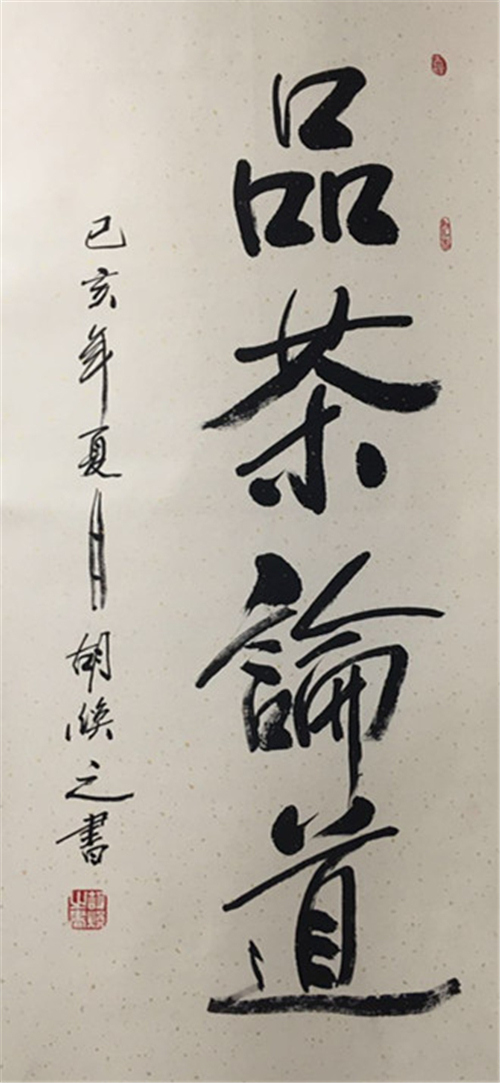 品茶論道
己亥年夏月胡焕之書